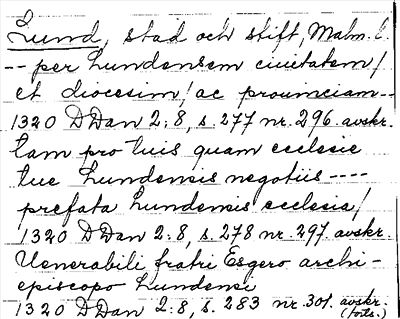 Lund, stad och stift, Malm. l.
-- per Lundensem ciuitatem /
et diocesim / ac prouinciam --
1320 DDan 2:8, s. 277 nr. 296. avskr.
tam pro tuis quam ecclesie
tue Lundensis negotiis ----
prefata Lundensis ecclesia /
1320 DDan 2:8, s. 278 nr. 297. avskr.
Uenerabili fratri Esgero archi-
episcopo Lundensi
1320 DDan 2:8, s. 283 nr. 301. avskr.
(forts.)